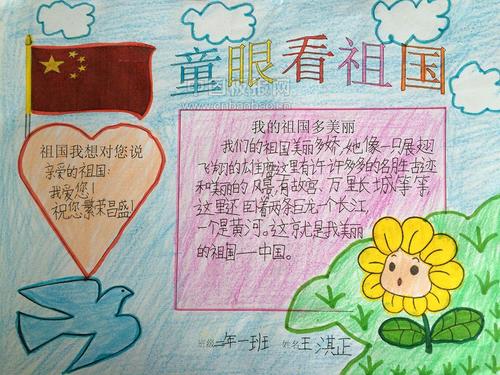 童眼看祖国
中国板报网
www.cnbanbao.cn
祖国我想对您说
亲爱的祖国:
我爱您!
祝您繁荣昌盛!
我的祖国多美丽
我们的祖国美丽多娇,她像一只展翅
飞翔的雄鹰,这里有许许多多的名胜古迹
和美丽的风景,有故宫、万里长城等等
这里还卧着两条巨龙一个长江,
一个是黄河。这就是我美丽
的祖国——中国。
班级 二年一班 姓名 王淇正